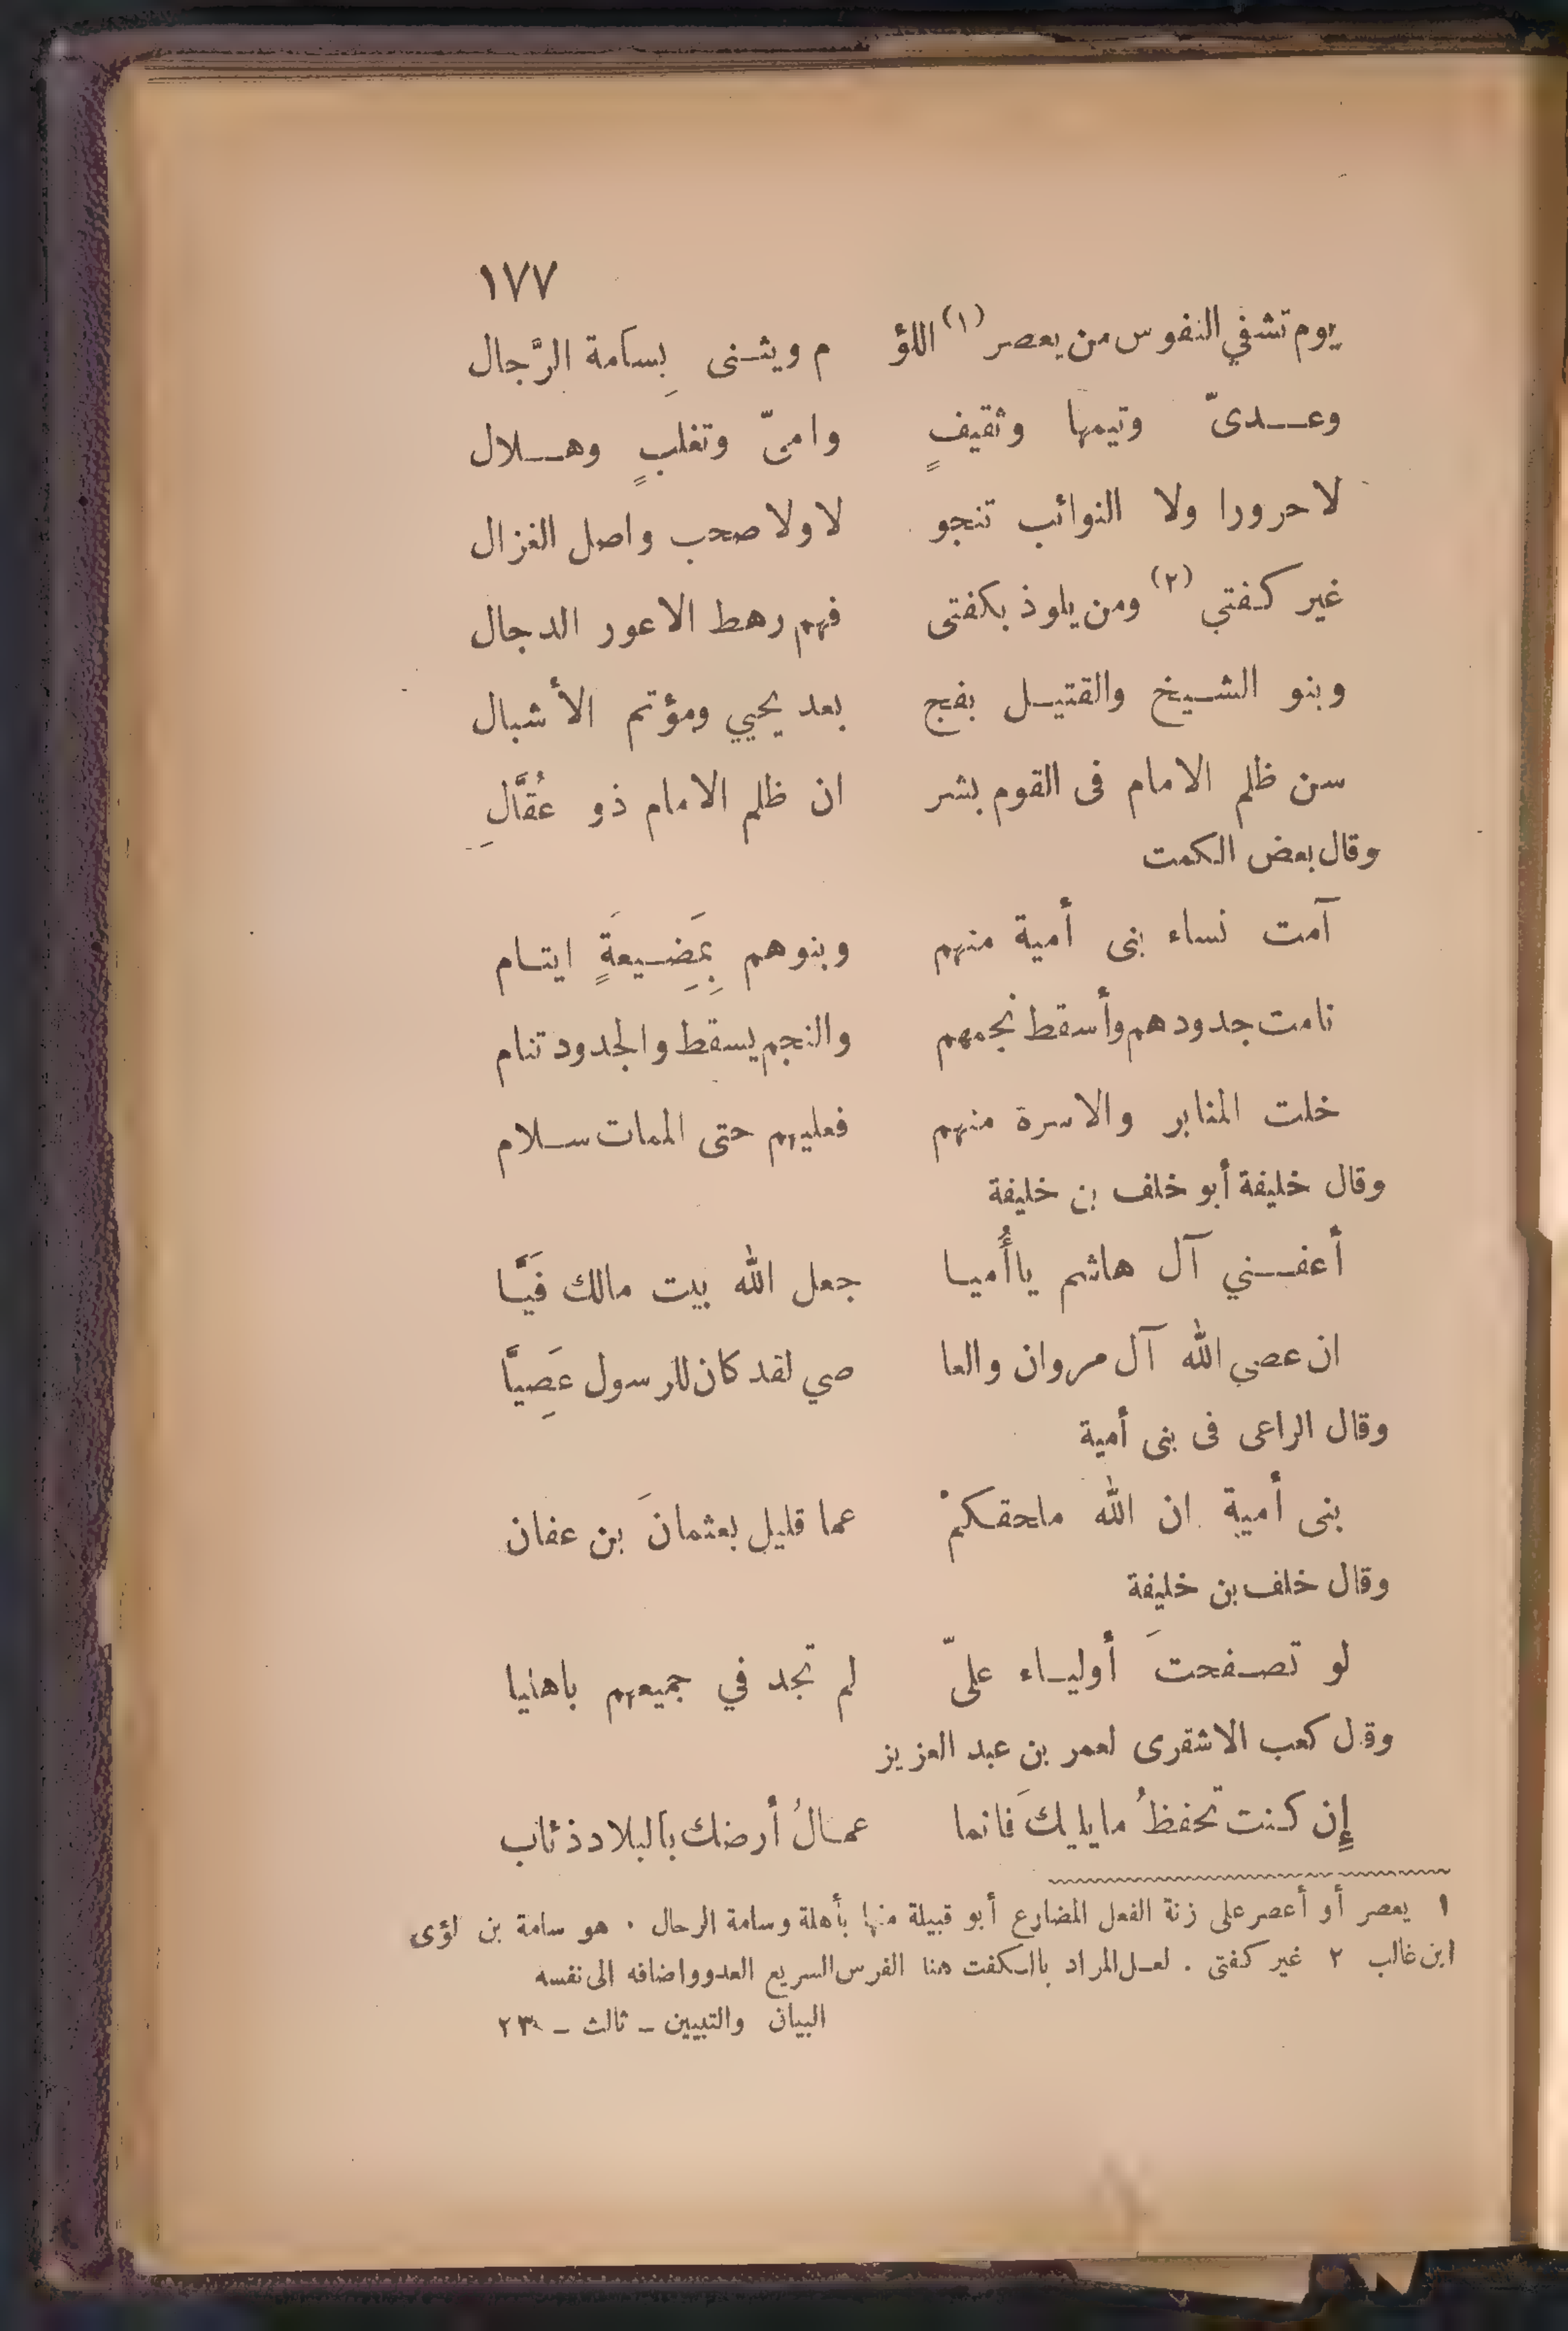 ١٧٧
يوم تشفي النفوس من يعصر (١) اللؤ م ويثنى بِسَامة الرّجال
وعدىّ وتيمها وثقيفٍ وامىّ وتغلبٍ وهلال
لا حرورا ولا النوائب تنجو لا ولا صحب واصل الغزال
غير كفتي (٢) ومن يلوذ بكفتى فهم رهط الاعور الدجال
وبنو الشيخ والقتيل بفج بعد يحيي ومؤتم الأشبال
سن ظلم الامام فى القوم بشر ان ظلم الامام ذو عُقَّالِ
وقال بعض الكمت
آمت نساء بنى أمية منهم وبنوهم بِمَضِيعةٍ ايتام
نامت جدودهم وأسقط نجمهم والنجم يسقط والجدود تنام
خلت المنابر والاسرة منهم فعليهم حتى الممات سلام
وقال خليفة أبو خلف بن خليفة
أعفني آل هاشم ياأُميا جعل الله بيت مالك فَيَّا
ان عصي الله آل مروان والعا صي لقد كان للرسول عَصِيَّا
وقال الراعى فى بنى أمية
بنى أمية ان الله ملحقكمْ عما قليل بعثمانَ بن عفان
وقال خلف بن خليفة
لو تصفحتَ أولياء علىّ لم تجد في جميعهم باهليا
وقل كعب الاشقرى لعمر بن عبد العزيز
إِن كنت تحفظُ مايليكَ فانما عمالُ أرضك بالبلاد ذئاب
١ يعصر أو أعصر على زنة الفعل المضارع أبو قبيلة منها بأهلة وسامة الرحال . هو سامة بن لؤى
ابن غالب ٢ غير كفتى . لعل المراد بالكفت هنا الفرس السريع العدو واضافه الى نفسه
البيان والتبيين ـ ثالث ـ ٢٣